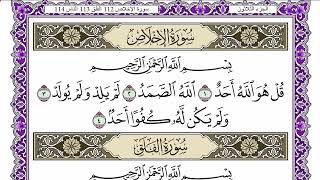 الجزء الثلاثون
سورة الإخلاص 112 الفلق 113 الناس 114
سُورَةُ الإِخْلَاصِ
بِسْمِ اللَّهِ الرَّحْمَٰنِ الرَّحِيمِ
قُلْ هُوَ اللَّهُ أَحَدٌ ١ اللَّهُ الصَّمَدُ ٢ لَمْ يَلِدْ وَلَمْ يُولَدْ ٣
وَلَمْ يَكُن لَّهُ كُفُوًا أَحَدٌ ٤
سُورَةُ الْفَلَقِ
بِسْمِ اللَّهِ الرَّحْمَٰنِ الرَّحِيمِ